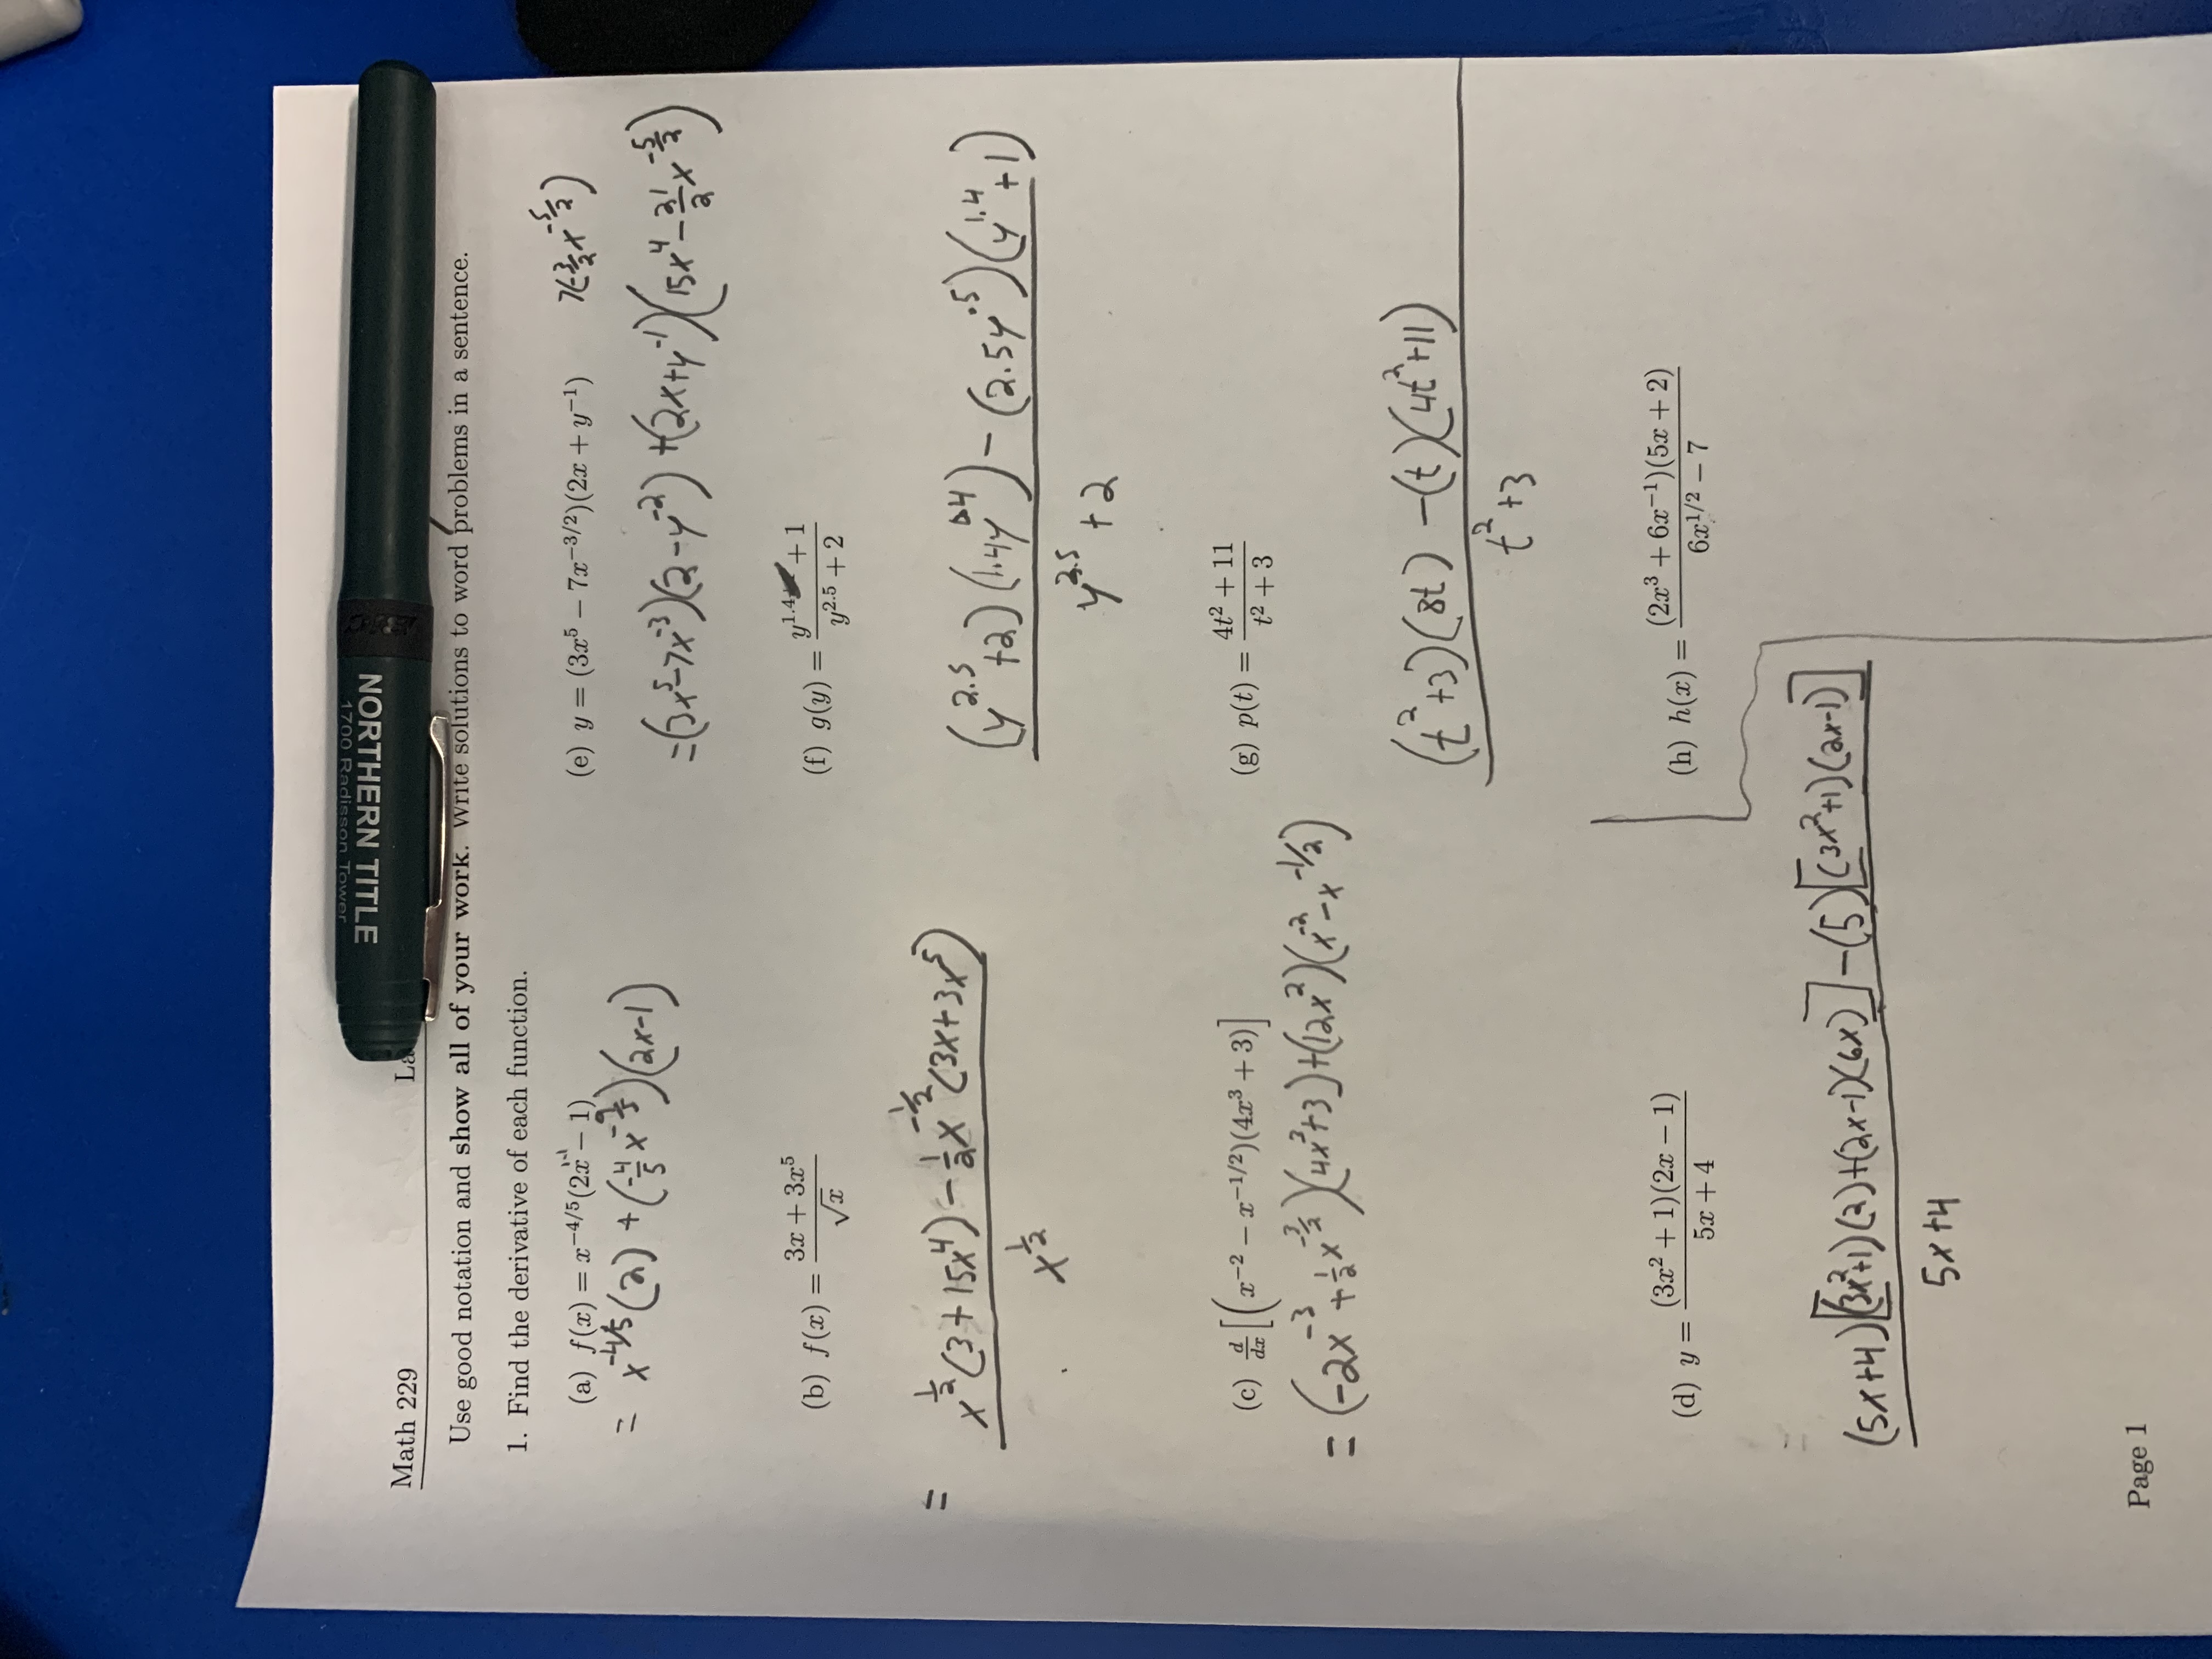 NORTHERN TITLE
1700 Radisson Tower
BIC
Math 229
La
Use good notation and show all of your work. Write solutions to word problems in a sentence.
1. Find the derivative of each function.
(a) f(x) = x^{-4/5}(2x - 1)
= x^{-4/5}(2) + (-4/5 x^{-9/5})(2x-1)
(b) f(x) = (3x + 3x^5)/√x
= (x^{1/2}(3+15x^4) - 1/2 x^{-1/2}(3x+3x^5))/x^{1/2}
(c) d/dx [(x^{-2} - x^{-1/2})(4x^3 + 3)]
= (-2x^{-3} + 1/2 x^{-3/2})(4x^3+3)+(12x^2)(x^{-2}-x^{-1/2})
(d) y = (3x^2 + 1)(2x - 1)/(5x + 4)
= (5x+4)[(3x^2+1)(2)+(2x-1)(6x)]-(5)[(3x^2+1)(2x-1)]
5x+4
(e) y = (3x^5 - 7x^{-3/2})(2x + y^{-1})
7(-3/2 x^{-5/2})
=(3x^5-7x^{-3})(2-y^{-2})+(2x+y^{-1})(15x^4-21/2 x^{-5/2})
(f) g(y) = (y^{1.4} + 1)/(y^{2.5} + 2)
(y^{2.5}+2)(1.4y^{0.4})-(2.5y^{.5})(y^{1.4}+1)
y^{2.5}+2
(g) p(t) = (4t^2 + 11)/(t^2 + 3)
(t^2+3)(8t)-(t)(4t^2+11)
t^2+3
(h) h(x) = (2x^3 + 6x^{-1})(5x + 2)/(6x^{1/2} - 7)
Page 1